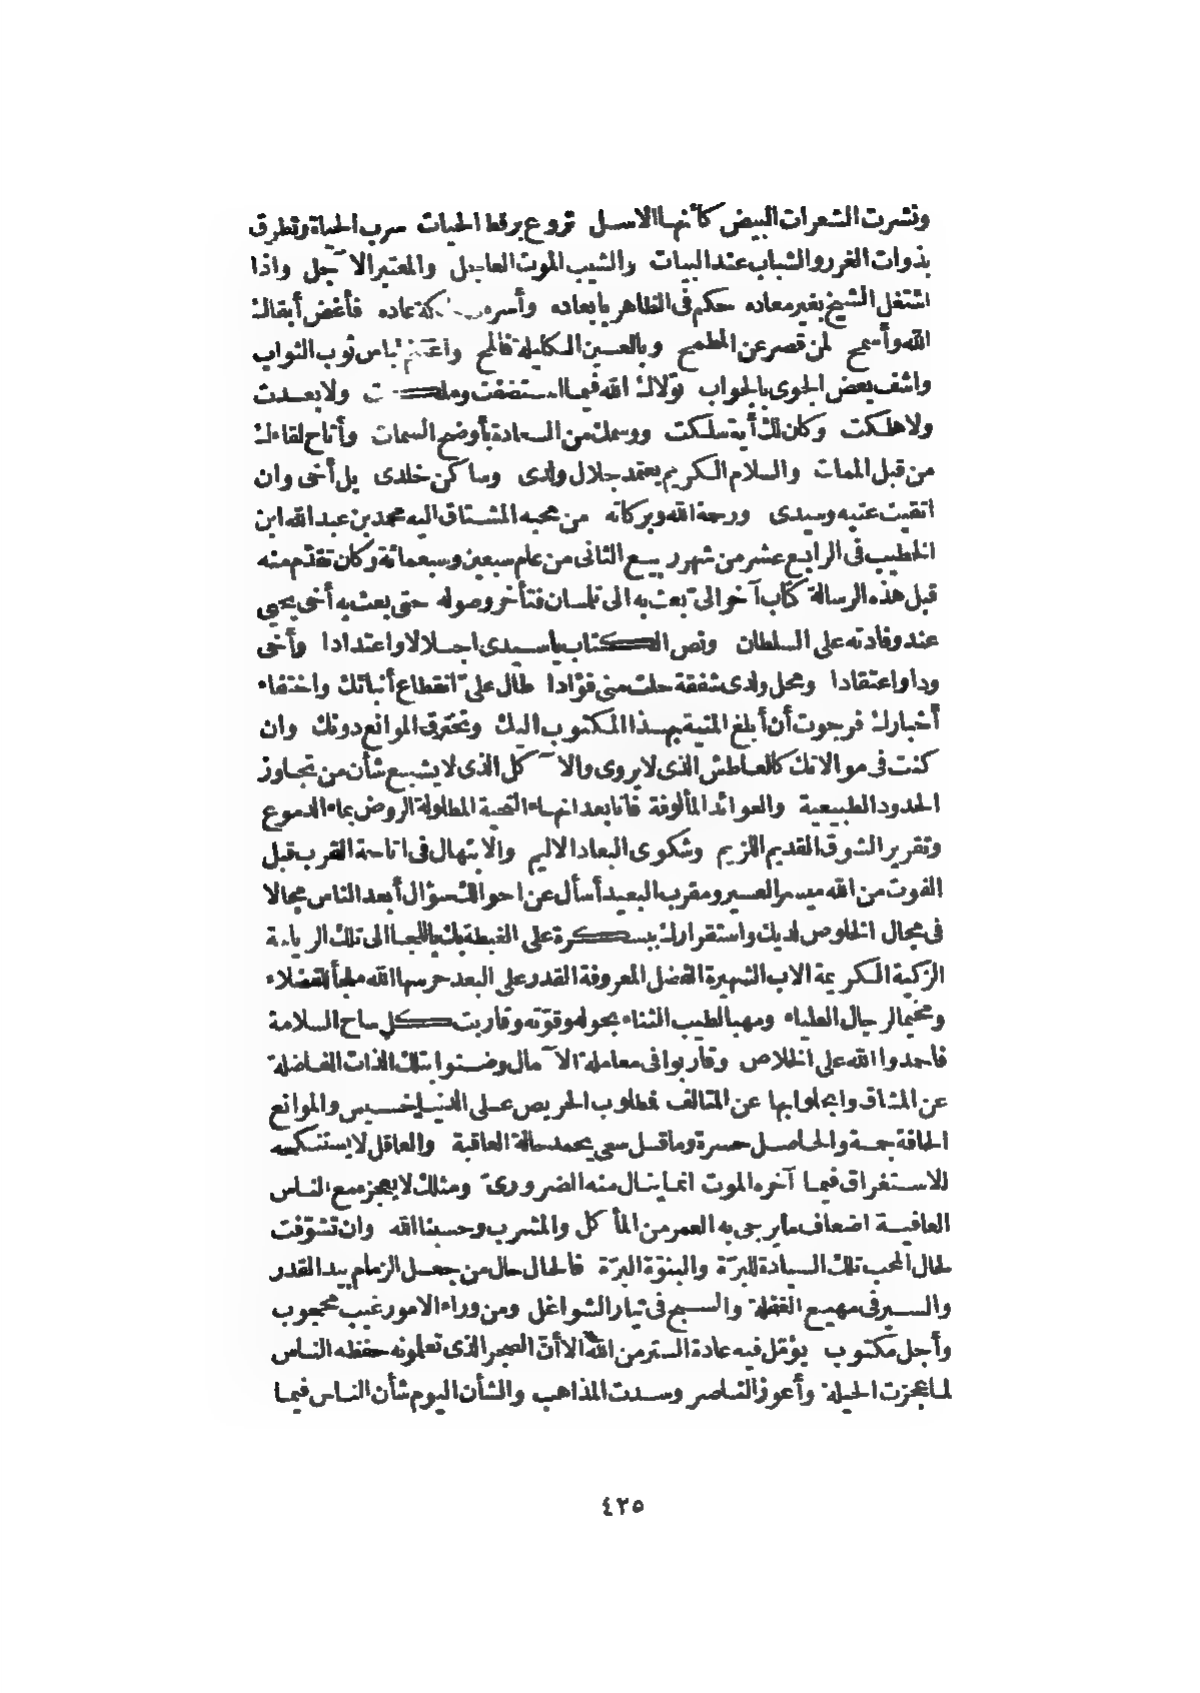 ونشرت الشعرات البيض كأنها الاسل تروع برقط الحيات سرب الحياة وتطرق
بذوات الغرر والشيات عند البيات والشيب الموت العاجل والمعتبر الآجل واذا
اشتغل الشيخ بغير معاده حكم فى الظاهر بابعاده وأسره ملكة عاده فأغض أبقاك
الله وأسمح لمن قصر عن المطمح وبالعين الكليلة فالمح واغتنم لباس ثوب الثواب
واشف بعض الجوى بالجواب تولاك الله فيما استضفت وملكت ولا بعدت
ولا هلكت وكان لك أية سلكت ووسمك من السعادة بأوضح السمات وأتاح لقاءك
من قبل الممات والسلام الكريم يعتمد جلال ولدى وساكن خلدى بل أخى وان
اتقيت عتبه وسيدى ورحمة الله وبركاته من محبه المشتاق اليه محمد بن عبد الله ابن
الخطيب فى الرابع عشر من شهر ربيع الثانى من عام سبعين وسبعمائة وكان تقدّم منه
قبل هذه الرسالة كتاب آخر الىّ بعث به الى تلمسان فتأخر وصوله حتى بعث به أخى يحيى
عند وفادته على السلطان ونص الكتاب يا سيدى اجلالا واعتدادا وأخى
ودا واعتقادا ومحل ولدى شفقة حلت منى فؤادا طال علىّ انقطاع أنبائك واختفاء
أخبارك فرجوت أن أبلغ المنية بهذا المكتوب اليك وتخترق الموانع دونك وان
كنت فى موالاتك كالعاطش الذى لا يروى والآكل الذى لا يشبع شأن من تجاوز
الحدود الطبيعية والعوائد المألوفة فانا بعد انهاء التحية المطلولة الروض بماء الدموع
وتقرير الشوق القديم اللزيم وشكوى البعاد الاليم والابتهال فى اتاحة القرب قبل
الفوت من الله ميسر العسير ومقرب البعيد أسأل عن احوالك سؤال أبعد الناس مجالا
فى مجال الخلوص لديك واستقرارك ببسكرة على الغبطة بك باللجا الى تلك الرياسة
الزكية الكريمة الاب الشهيرة الفضل المعروفة القدر على البعد حرسها الله ملجأ للفضلاء
ومخيما لرجال العلياء ومهبا لطيب الثناء بحوله وقوّته وقاربت كل ساح السلامة
فاحمدوا الله على الخلاص وقاربوا فى معاملة الآمال وضنوا بتلك الذات الفاضلة
عن المشاق وابخلوا بها عن المتالف فمطلوب الحريص على الدنيا خسيس والموانع
الحافة جمة والحاصل حسرة وما قل سعى يحمد حالة العاقبة والعاقل لا يستنكسه
الاستغراق فيما آخره الموت انما ينال منه الضرورىّ ومثلك لا يعجز مع الناس
العافية اضعاف ما يرجى به العمر من المأكل والمشرب وحسبنا الله وان تشوّفت
لحال المحب تلك السيادة البرّة والبنوّة البرّة فالحال حال من جعل الزمام بيد القدر
والسير فى مهيع الغفلة والسبح فى تيار الشواغل ومن وراء الامور غيب محجوب
وأجل مكتوب يؤمّل فيه عادة الستر من الله الا أنّ الضجر الذى تعلمونه حفظه الناس
لما عجزت الحيلة وأعوز المناصر وسدت المذاهب والشأن اليوم شأن الناس فيما
٤٢٥